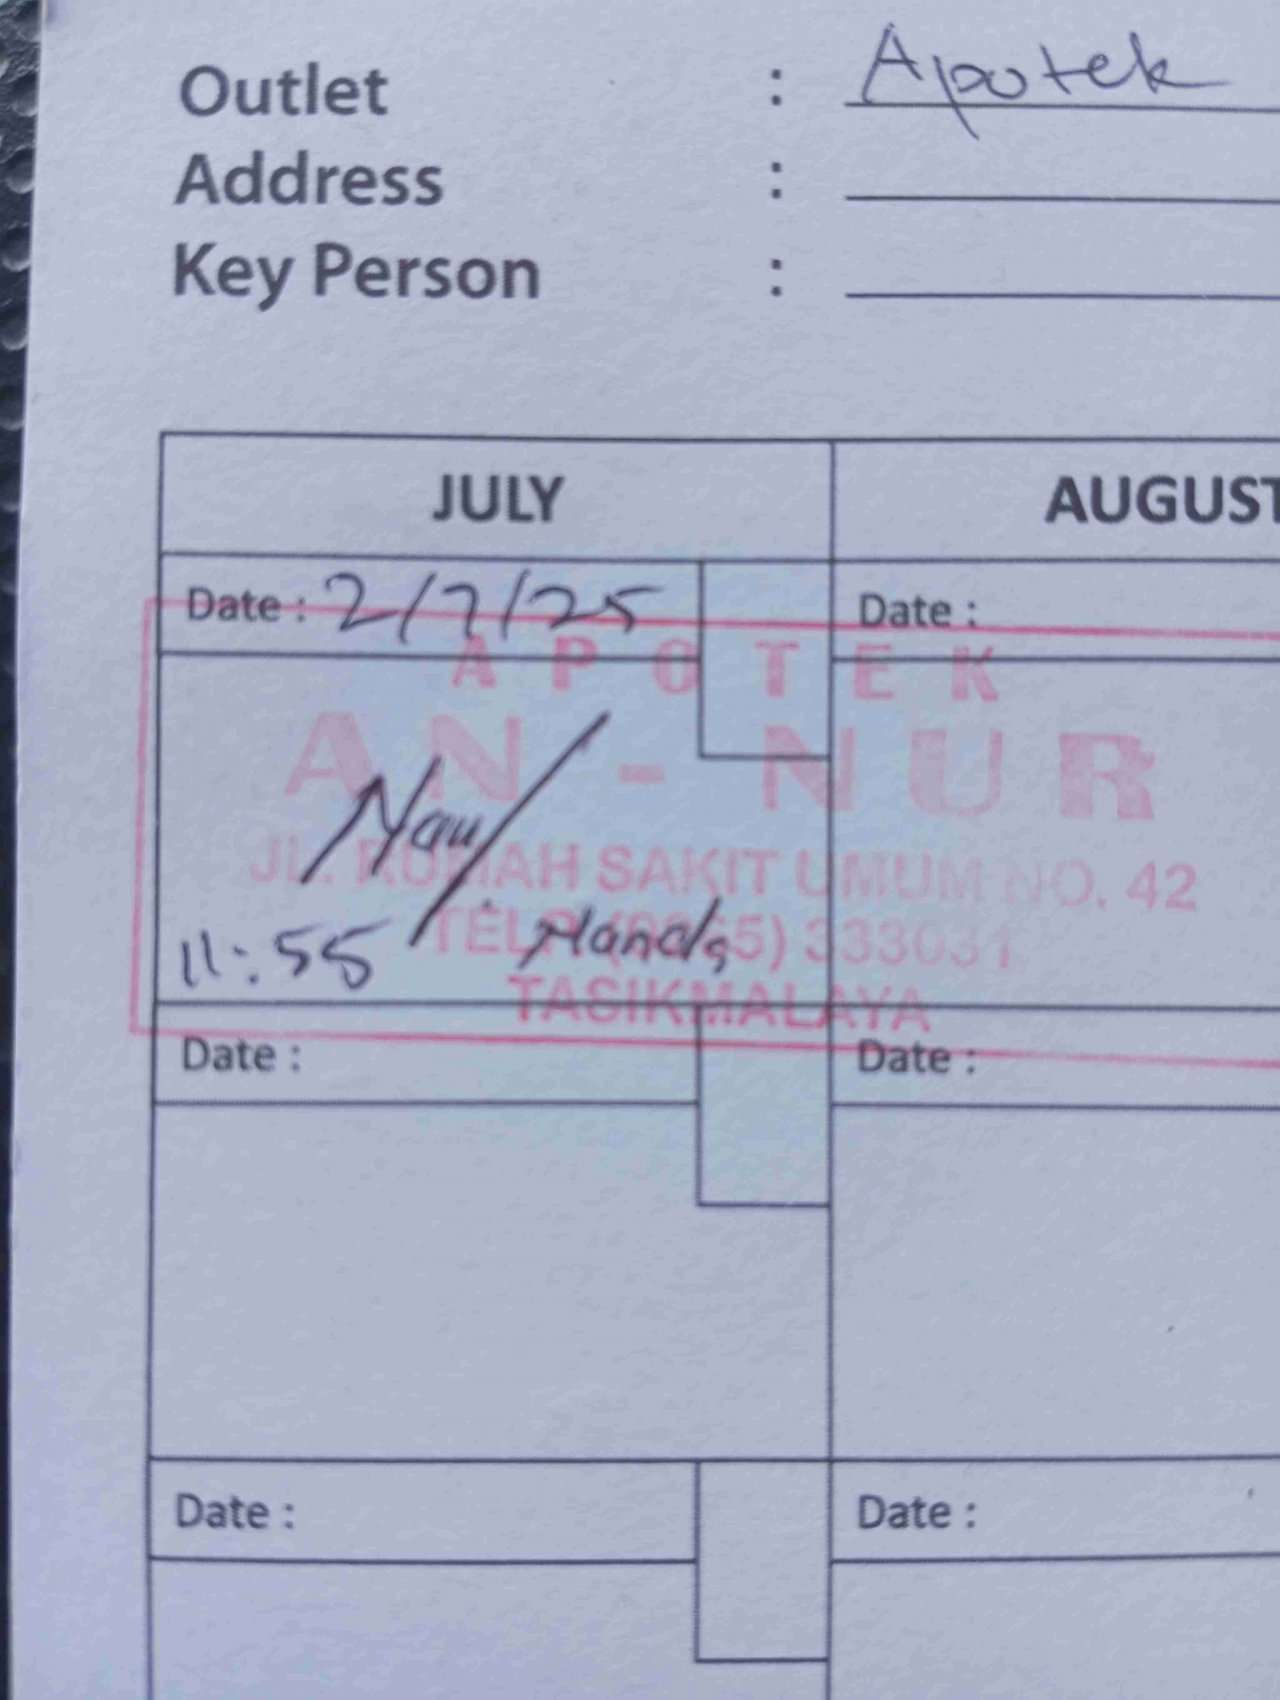 Outlet : Apotek
Address :
Key Person :
JULY AUGUST
Date : 2/7/25 Date :
APOTEK
AN - NUR
JL. RUMAH SAKIT UMUM NO. 42
TELP. (0265) 333031
TASIKMALAYA
11:55
Date : Date :
Date : Date :